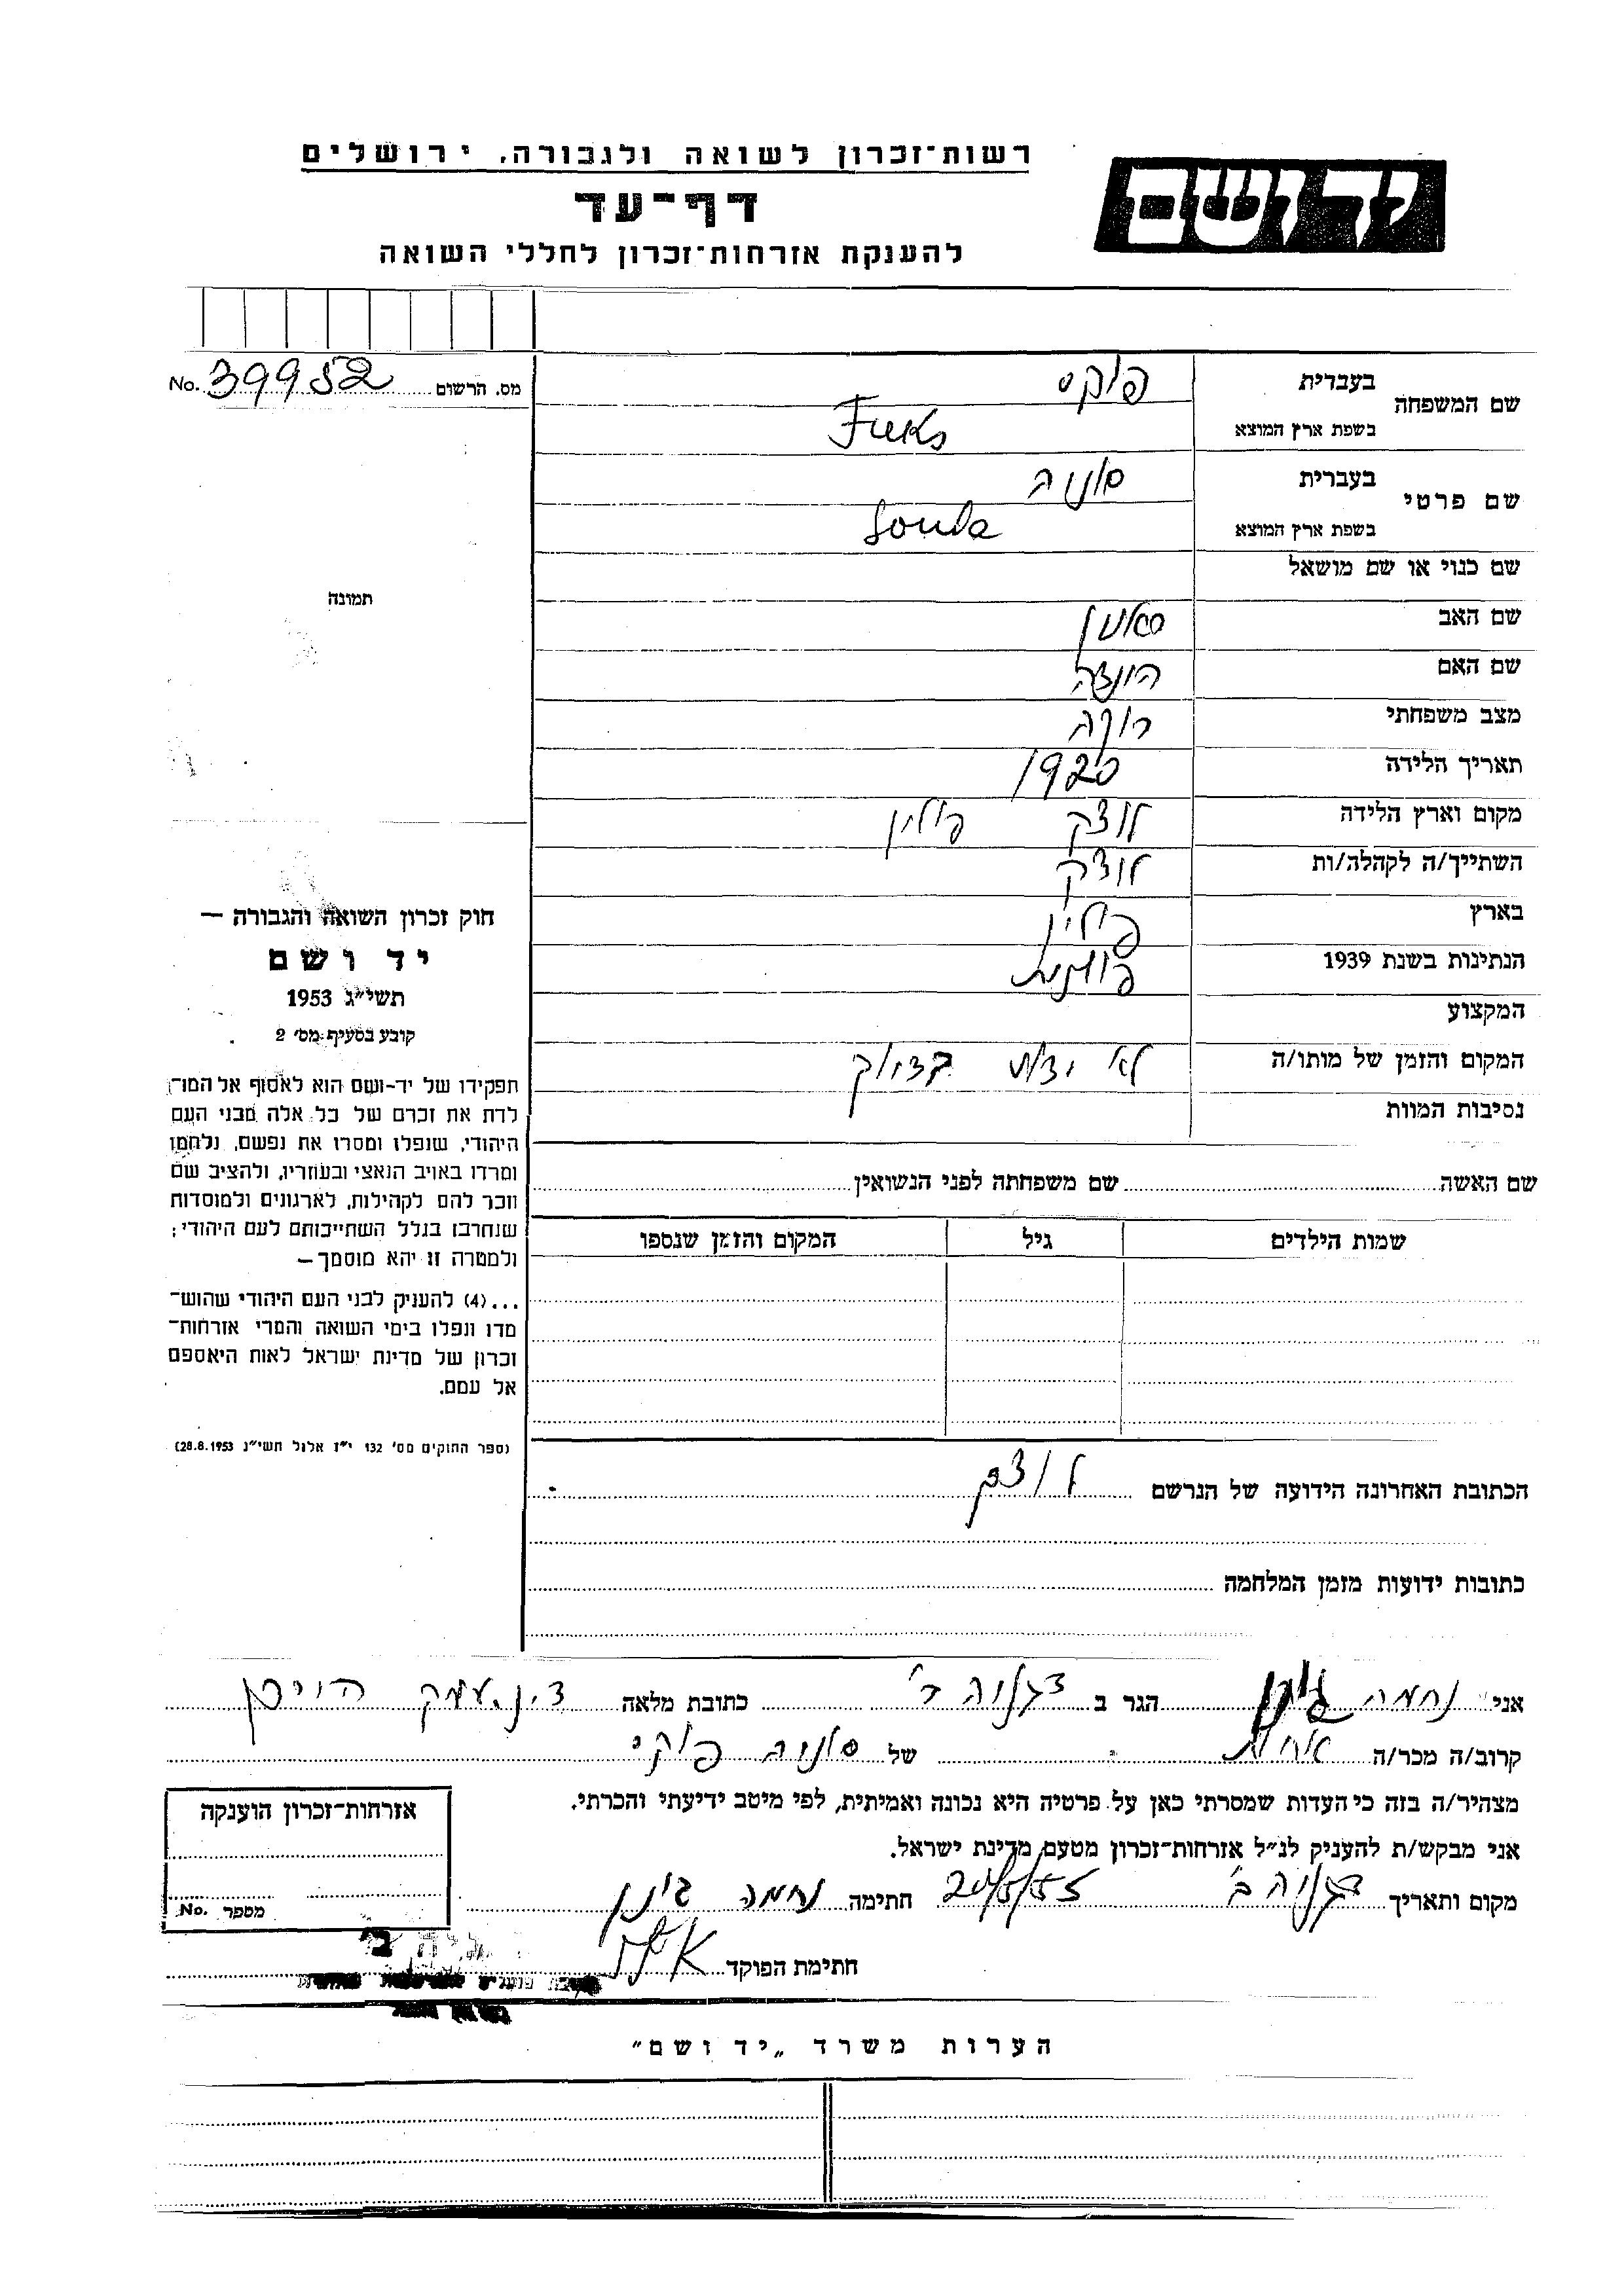 רשות־זכרון לשואה ולגבורה, ירושלים
יד ושם
דף־עד
להענקת אזרחות־זכרון לחללי השואה
מס. הרשום 39952 No.
שם המשפחה
בעברית פוקס
בשפת ארץ המוצא Fuks
שם פרטי
בעברית סוניה
בשפת ארץ המוצא Sonia
שם כנוי או שם מושאל
תמונה
שם האב
שם האם
מצב משפחתי רוקה
תאריך הלידה 1920
מקום וארץ הלידה לוצק פולין
השתייך/ה לקהלה/ות לוצק
בארץ פולין
הנתינות בשנת 1939 פולנית
המקצוע
המקום והזמן של מותו/ה לא ידוע בדיוק
נסיבות המוות
חוק זכרון השואה והגבורה —
יד ושם
תשי"ג 1953
קובע בסעיף מס' 2
תפקידו של יד-ושם הוא לאסוף אל המו־
לדת את זכרם של כל אלה מבני העם
היהודי, שנפלו ומסרו את נפשם, נלחמו
ומרדו באויב הנאצי ובעוזריו, ולהציב שם
וזכר להם לקהילות, לארגונים ולמוסדות
שנחרבו בגלל השתייכותם לעם היהודי;
ולמטרה זו יהא מוסמך—
...(4) להענק לבני העם היהודי שהוש־
מדו ונפלו בימי השואה והמרי אזרחות־
זכרון של מדינת ישראל לאות היאספם
אל עמם.
(ספר החוקים מס' 132 י"ז אלול תשי"ג 28.8.1953)
שם האשה שם משפחתה לפני הנשואין
שמות הילדים גיל המקום והזמן שנספו
הכתובת האחרונה הידועה של הנרשם לוצק
כתובות ידועות מזמן המלחמה
אני נחמה הגר ב דגניה ב' כתובת מלאה ד.נ. עמק הירדן
קרוב/ה מכר/ה אחות של סוניה פוקס
מצהיר/ה בזה כי העדות שמסרתי כאן על פרטיה היא נכונה ואמיתית, לפי מיטב ידיעתי והכרתי.
אני מבקש/ת להעניק לנ"ל אזרחות־זכרון מטעם מדינת ישראל.
מקום ותאריך דגניה ב' 20/5/55 חתימה נחמה
חתימת הפוקד
אזרחות־זכרון הוענקה
מספר No.
הערות משרד „יד ושם"